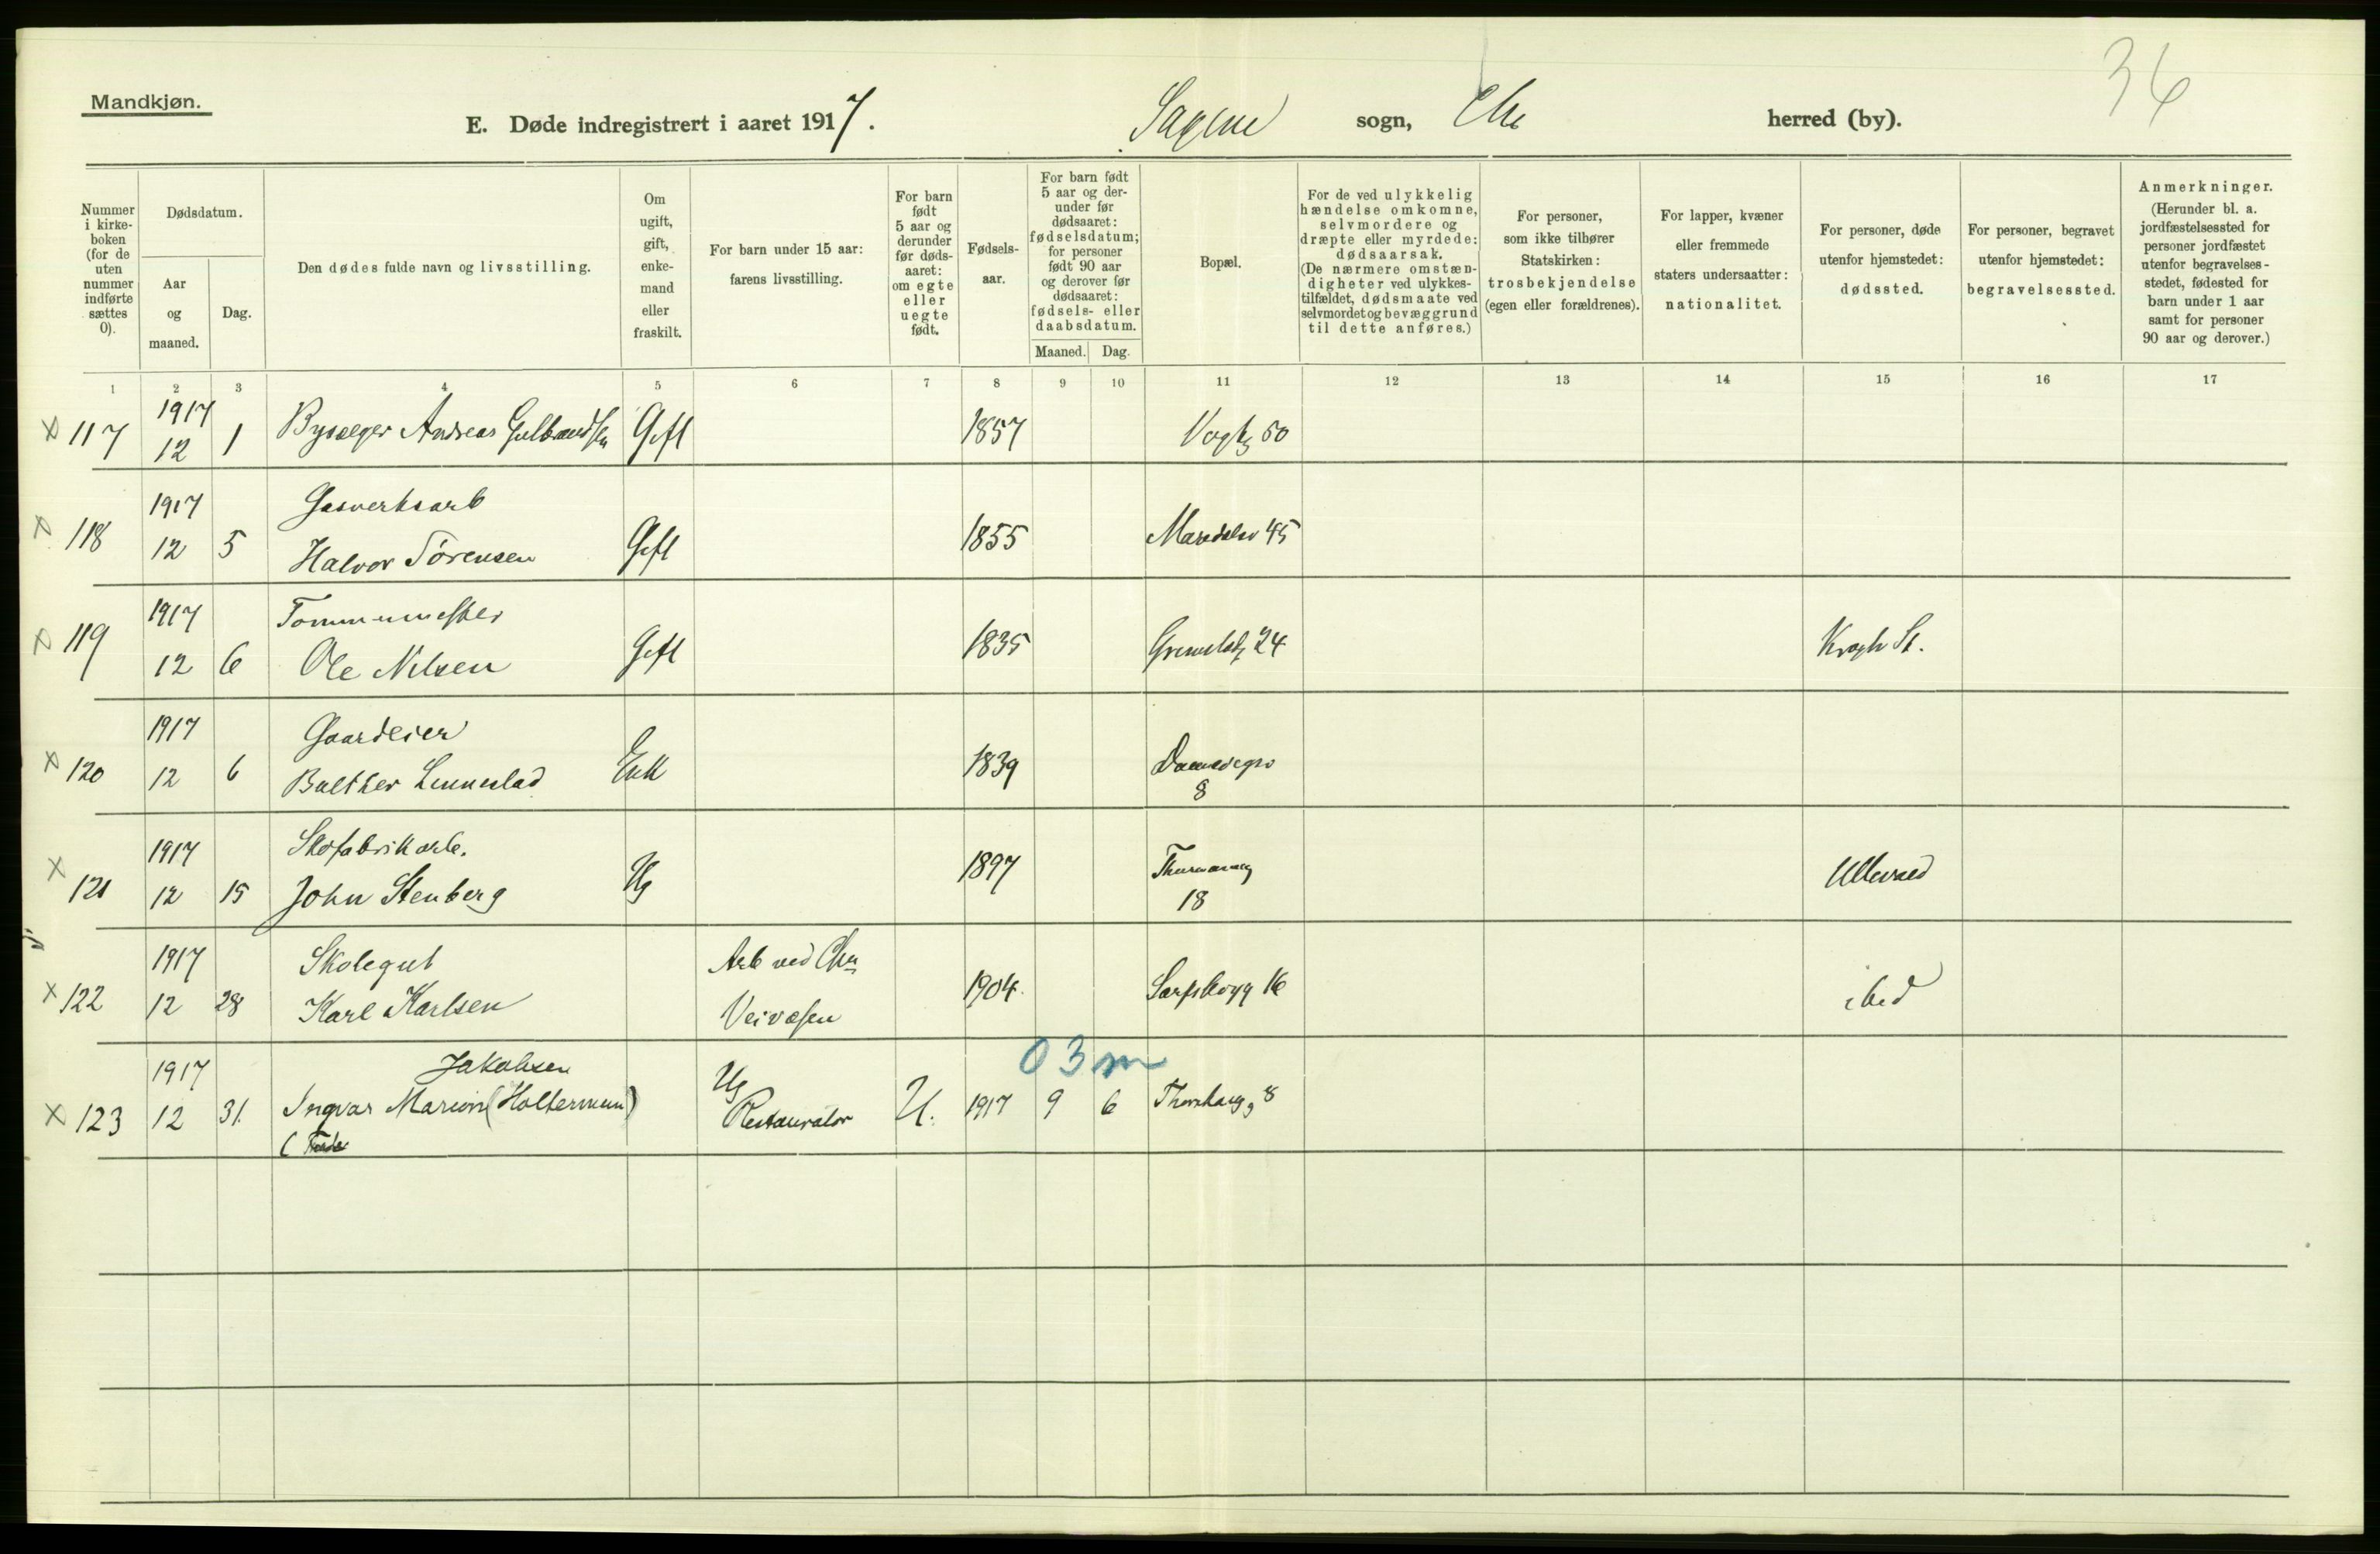 36
Mandkjøn.
E. Døde indregistrert i aaret 1917.
Sagene sogn, Chr herred (by).
Nummer i kirkeboken (for de uten nummer indførte sættes 0).
Dødsdatum.
Aar og maaned.
Dag.
Den dødes fulde navn og livsstilling.
Om ugift, gift, enkemand eller fraskilt.
For barn under 15 aar: farens livsstilling.
For barn født 5 aar og derunder før dødsaaret: om egte eller uegte født.
Fødselsaar.
For barn født 5 aar og derunder før dødsaaret: fødselsdatum; for personer født 90 aar og derover før dødsaaret: fødsels- eller daabsdatum.
Maaned. Dag.
Bopæl.
For de ved ulykkelig hændelse omkomne, selvmordere og dræpte eller myrdede: dødsaarsak. (De nærmere omstændigheter ved ulykkestilfældet, dødsmaate ved selvmordet og bevæggrund til dette anføres.)
For personer, som ikke tilhører Statskirken: trosbekjendelse (egen eller forældrenes).
For lapper, kvæner eller fremmede staters undersaatter: nationalitet.
For personer, døde utenfor hjemstedet: dødssted.
For personer, begravet utenfor hjemstedet: begravelsessted.
Anmerkninger. (Herunder bl. a. jordfæstelsessted for personer jordfæstet utenfor begravelsesstedet, fødested for barn under 1 aar samt for personer 90 aar og derover.)
1 2 3 4 5 6 7 8 9 10 11 12 13 14 15 16 17
x 117 1917 12 1 Andreas Gulbrandsen Gift 1857 Vogtg 50
x 118 1917 12 5 Gasverksarb
Halvor Sørensen Gift 1855 Maridalsv 45
x 119 1917 12 6 Tømmermester
Ole Nilsen Gift 1835 24 Krogh St.
x 120 1917 12 6 Gaardeier
Balther Lunnestad Enk 1839 8
x 121 1917 12 15 Skofabrikarb.
John Stenberg Ug 1897 18 Ullevaal
x 122 1917 12 28 Skolegut Arb ved Chra
Karl Karlsen Veivæsen 1904 Sarpsborgg 16 ibid
03m
x 123 1917 12 31. Jakobsen Ug
Ingvar Marion (Holtermann) Restauratør U. 1917 9 6 Thorshaugg 8